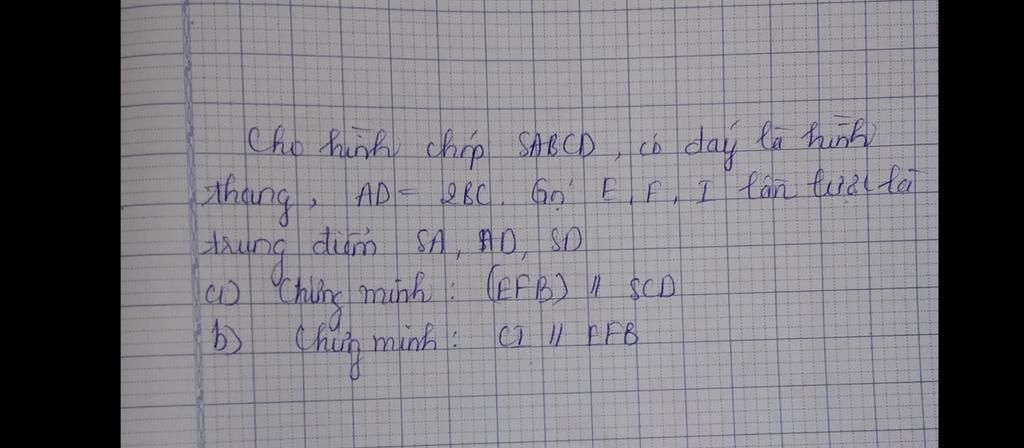 Cho hình chóp SABCD, có đáy là hình
thang, AD = 2BC. Gọi E, F, I lần lượt là
trung điểm SA, AD, SD
a) Chứng minh: (EFB) // SCD
b) Chứng minh: CI // EFB